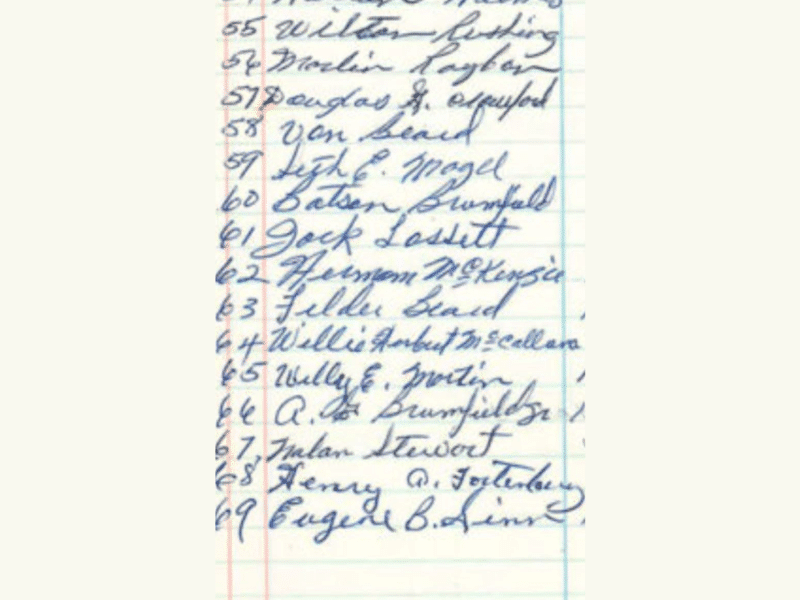 55 Wilton Rushing
56 Marlin Rayborn
57 Douglas H. Crawford
58 Van Beard
59 Seth E. Magel
60 Batson Brumfield
61 Jack Lossett
62 Herman McKenzie
63 Felder Beard
64 Willie Herbert McCallum
65 Willy E. Martin
66 A. Brumfield Jr
67. Nolan Stewart
68 Henry A. Fortenberry
69 Eugene B. Sinn